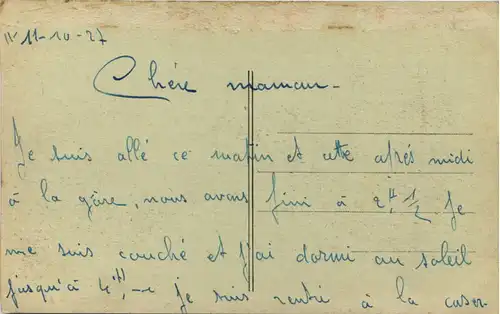 11-10-27
Chère maman -
Je suis allé ce matin et cette après midi
à la gare, nous avons fini à 2H 1/2 Je
me suis couché et j'ai dormi au soleil
jusqu'à 4H, - Je suis rentré à la caser